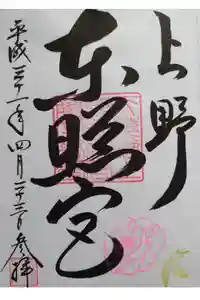 上野
東照宮
平成三十一年四月二十三日参拝